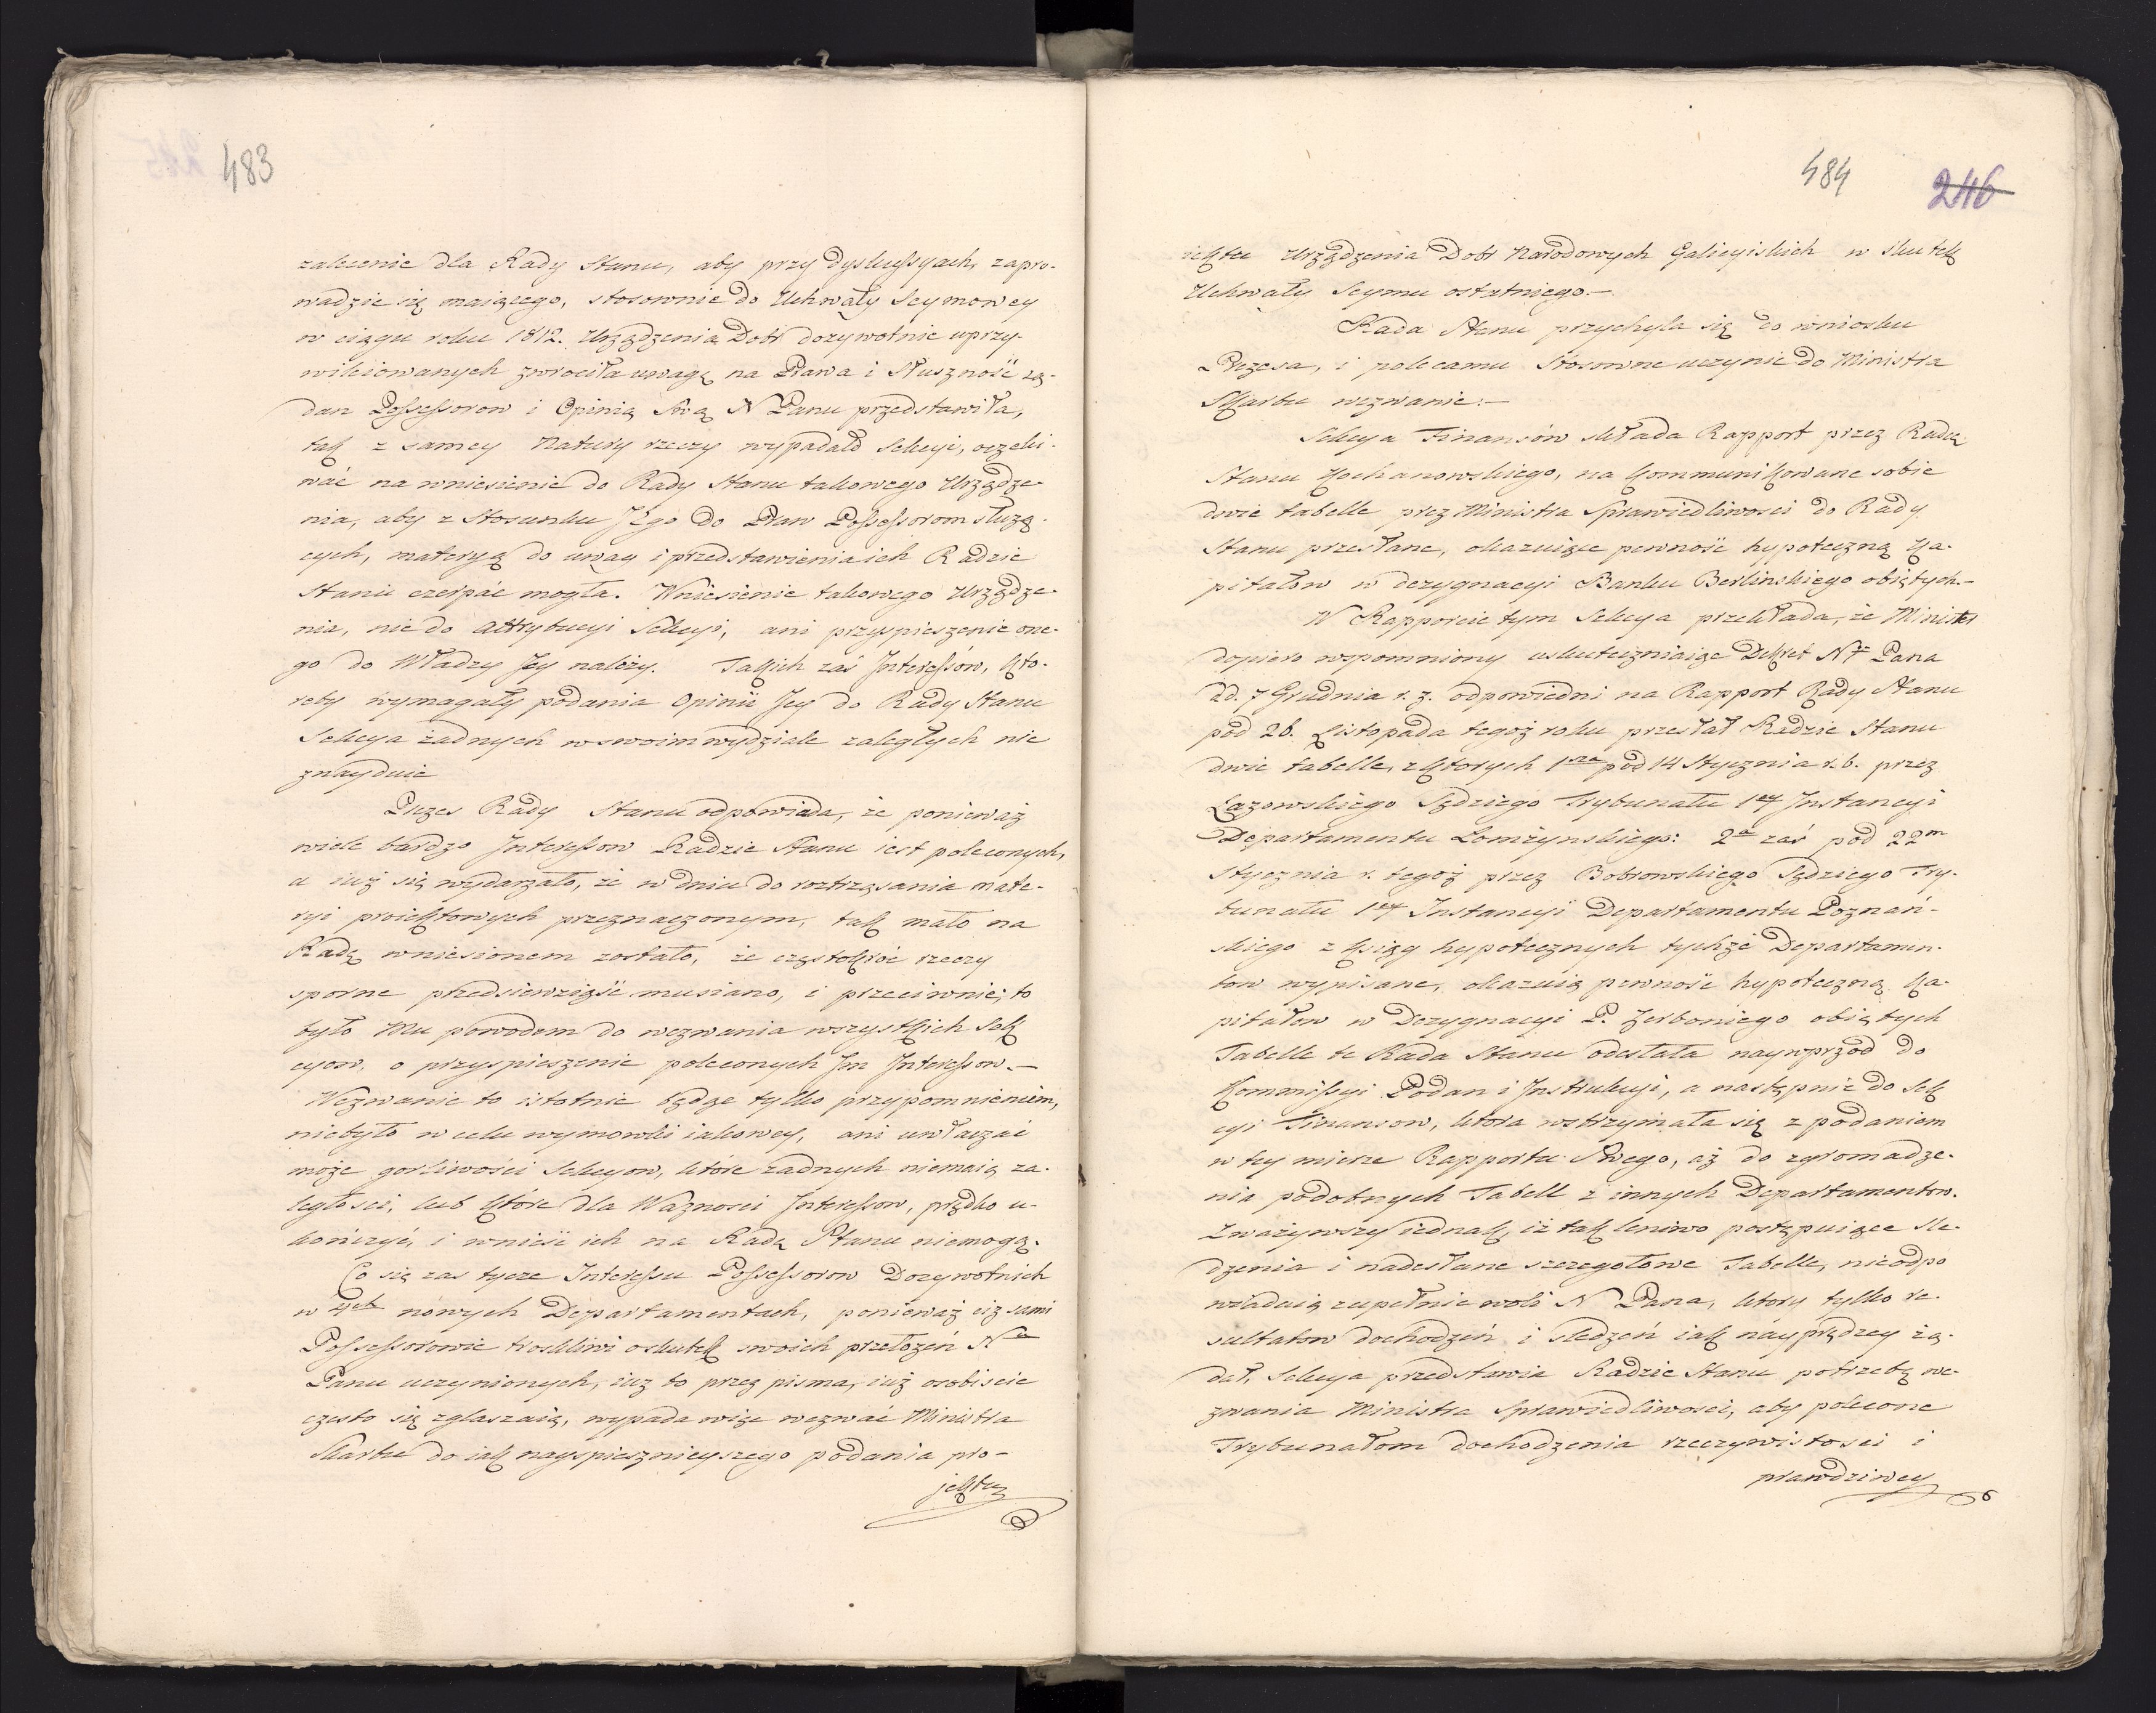 483
zalecenie dla Rady Stanu, aby przy dyskussyach, zapro-
wadzie się maiącego, stosownie do Uchwały Seymowey
w ciągu roku 1812. Urządzenia Dobr dozywotnie uprzy-
wileiowanych zwrociła uwagę na Prawa i Słuszność żą-
dan Possessorow i Opinią Swą N Panu przedstawiła,
tak z samey Natury rzeczy wypadało Sekcyi, oczeki-
wać na wniesienie do Rady Stanu takowego Urządze-
nia, aby z Stosunku Jego do Praw Possessorom służą-
cych, materyą do uwag i przedstawienia ich Radzie
Stanu czerpać mogła. Wniesienie takowego Urządze-
nia, nie do Attrybucyi Sekcyi, ani przyspieszenie one-
go do Władzy Jey należy. Takich zaś Interessów, kto-
reby wymagały podania Opinii Jey do Rady Stanu
Sekcya żadnych w swoim wydziale zaległych nie
znayduie
Prezes Rady Stanu odpowiada, że ponieważ
wiele bardzo Interessow Radzie Stanu iest poleconych,
a iuż się wydarzało, że w dniu do roztrząsania mate-
ryi proiektowych przeznaczonym, tak mało na
Radę wniesionem zostało, że częstokroć rzeczy
sporne przedsiewziąść musiano, i przeciwnie; to
było Mu powodem do wezwania wszystkich Sek
cyow, o przyspieszenie poleconych Im Interessow.—
Wezwanie to istotnie będąc tylko przypomnieniem,
niebyło w celu wymowki iakowey, ani uwłaczać
może gorliwości Sekcyow, które żadnych niemaią za-
ległosci, lub które dla Ważnosci Interessow, prędko u-
kończyć, i wnieść ich na Radę Stanu niemogą.
Co się zas tycze Interessu Possessorow Dozywotnich
w 4ch nowych Departamentach, ponieważ ciż sami
Possessorowie troskliwi o skutek swoich przełożeń Na
Panu uczynionych, iuż to przez pisma, iuż osobiscie
często się zgłaszaią, wypada więc wezwać Ministra
Skarbu do iak nayspiesznieyszego podania pro-
jektu
484
246
iektu Urządzenia Dobr Narodowych Galicyiskich w skutek
Uchwały Seymu ostatniego.—
Rada Stanu przychyla się do wniosku
Prezesa, i poleca mu Stosowne uczynic do Ministra
Skarbu wezwanie.—
Sekcya Finansów składa Rapport przez Radcę
Stanu Kochanowskiego, na kommunikowane sobie
dwie tabelle prez Ministra Sprawiedliwosci do Rady
Stanu przesłane, okazuiące pewność hypoteczną Ka-
pitałow w dezygnacyi Banku Berlinskiego obiętych.—
W Rapporcie tym Sekcya przekłada, że Minister
dopiero wspomniony uskuteczniaiąc Dekret No Pana
dd. 7 Grudnia r. z. odpowiedni na Rapport Rady Stanu
pod 26. Listopada tegoż roku przesłał Radzie Stanu
dwie tabelle, z ktorych 1sza pod 14 Stycznia r. b. przez
Łazowskiego Sędziego Trybunału 1ey Instancyi
Departamentu Lomżynskiego: 2a zaś pod 22m
Stycznia r. tegoż przez Bobrowskiego Sędziego Try-
bunału 1ey Instancyi Departamentu Poznań-
skiego z ksiąg hypotecznych tychże Departamen-
tow wypisane, okazuią pewność hypoteczną Ka-
pitałow w Dezygnacyi P. Zerboniego obiętych
Tabelle te Rada Stanu odesłała nayprzod do
Kommissyi Podan i Instrukcyi, a następnie do Sek
cyi Finansow, ktora wstrzymała się z podaniem
w tey mierze Rapportu Swego, aż do zgromadze-
nia podobnych Tabell z innych Departamentow.
Zważywszy iednak, iż tak leniwo postępuiące sle-
dzenia i nadesłane szczegołowe Tabelle, nieodpo
wiadaią zupełnie woli N Pana, ktory tylko re-
sultatow dochodzeń i sledzeń iak nayprędzey żą-
dał, Sekcya przedstawia Radzie Stanu potrzebę we-
zwania Ministra Sprawiedliwosci, aby polecone
Trybunałom dochodzenia rzeczywistosci i
prawdziwey